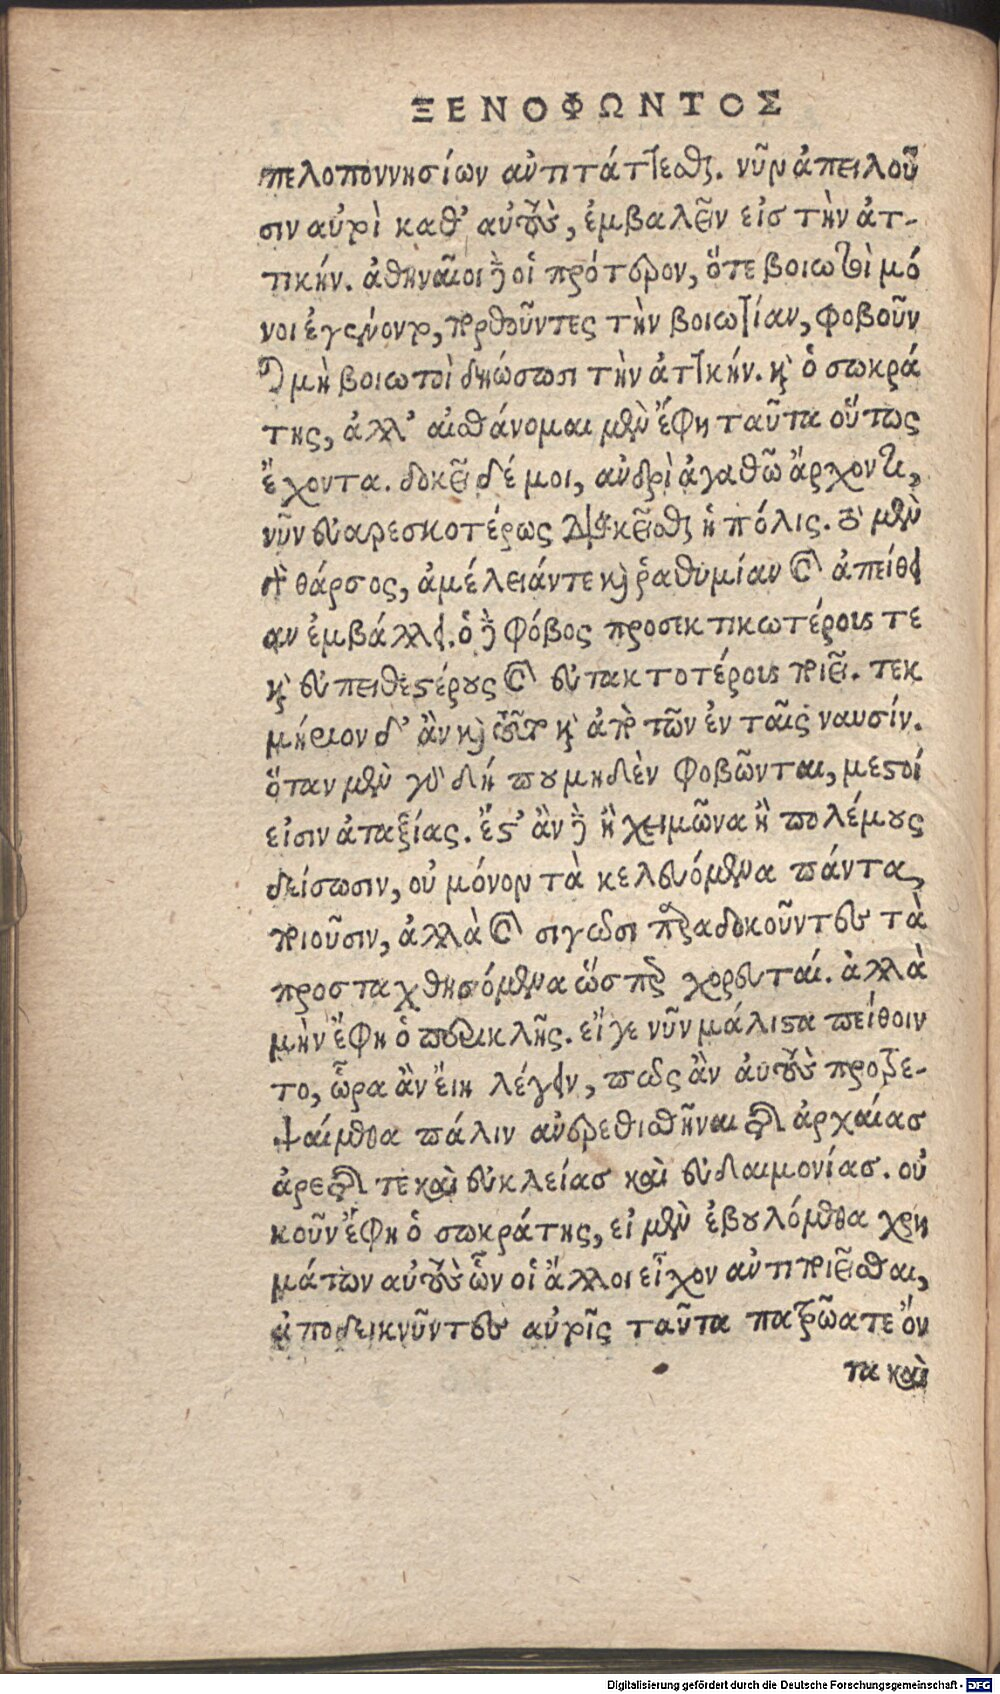 ΞΕΝΟΦΩΝΤΟΣ
πελοποννησίων ἀντιτάττεσθαι. νῦν ἀπειλοῦ
σιν αὐτοὶ καθ' αὑτοὺς, ἐμβαλεῖν εἰς τὴν ἀτ-
τικήν. ἀθηναῖοι δὲ οἱ πρότερον, ὅτε βοιωτοὶ μό
νοι ἐγένοντο, πορθοῦντες τὴν βοιωτίαν, φοβοῦν
ται μὴ βοιωτοὶ δῃώσωσι τὴν ἀττικήν. καὶ ὁ σωκρά
της, ἀλλ' αἰσθάνομαι μὲν ἔφη ταῦτα οὕτως
ἔχοντα. δοκεῖ δέ μοι, ἀνδρὶ ἀγαθῷ ἄρχοντι,
νῦν εὐαρεσκοτέρως διακεῖσθαι ἡ πόλις. τὸ μὲν
γὰρ θάρσος, ἀμέλειάν τε καὶ ῥαθυμίαν καὶ ἀπείθει
αν ἐμβάλλει. ὁ δὲ φόβος προσεκτικωτέρους τε
καὶ εὐπειθεστέρους καὶ εὐτακτοτέρους ποιεῖ. τεκ
μήριον δ' ἂν καὶ τοῦτο καὶ ἀπὸ τῶν ἐν ταῖς ναυσίν.
ὅταν μὲν γὰρ δή που μηδὲν φοβῶνται, μεστοί
εἰσιν ἀταξίας. ἔστ' ἂν δὲ ἢ χειμῶνα ἢ πολέμους
δείσωσιν, οὐ μόνον τὰ κελευόμενα πάντα
ποιοῦσιν, ἀλλὰ καὶ σιγῶσι καραδοκοῦντες τὰ
προσταχθησόμενα ὥσπερ χορευταί. ἀλλὰ
μὴν ἔφη ὁ περικλῆς. εἴ γε νῦν μάλιστα πείθοιν
το, ὥρα ἂν εἴη λέγειν, πῶς ἂν αὐτοὺς προτρε-
ψαίμεθα πάλιν ἀνερεθισθῆναι τῆς ἀρχαίας
ἀρετῆς τε καὶ εὐκλείας καὶ εὐδαιμονίας. οὐ
κοῦν ἔφη ὁ σωκράτης, εἰ μὲν ἐβουλόμεθα χρη
μάτων αὐτοὺς ὧν οἱ ἄλλοι εἶχον ἀντιποιεῖσθαι,
ἀποδεικνῦντες αὐτοῖς ταῦτα πατρῷά τε ὄν
τα καὶ
Digitalisierung gefördert durch die Deutsche Forschungsgemeinschaft - DFG